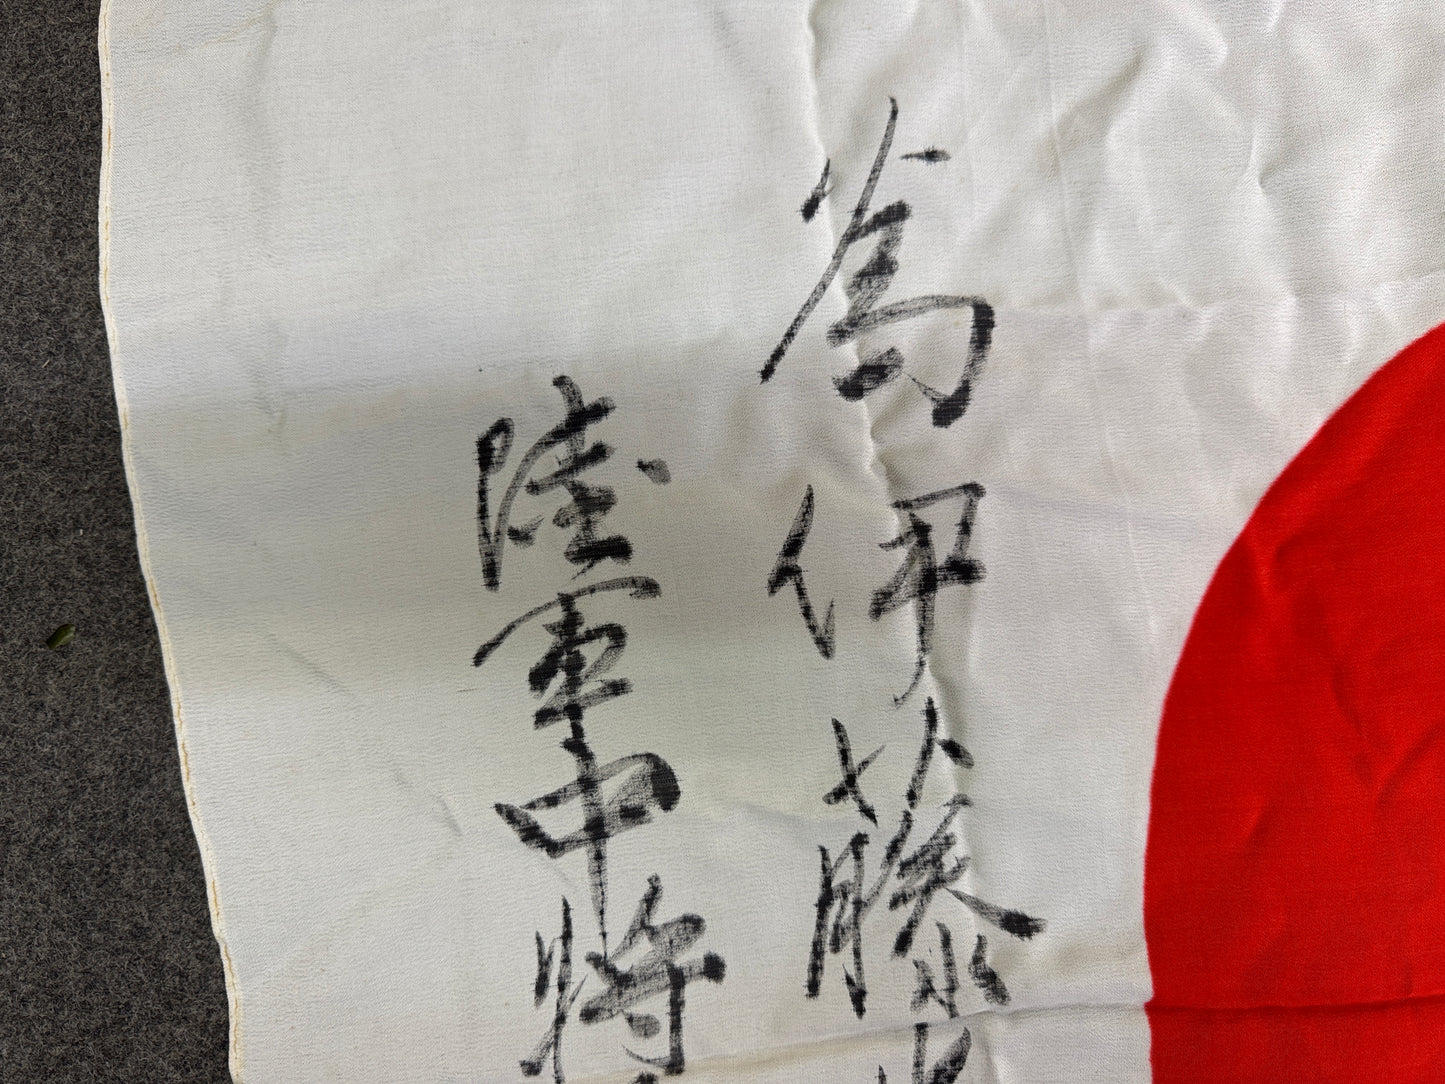 為伊藤
陸軍中将